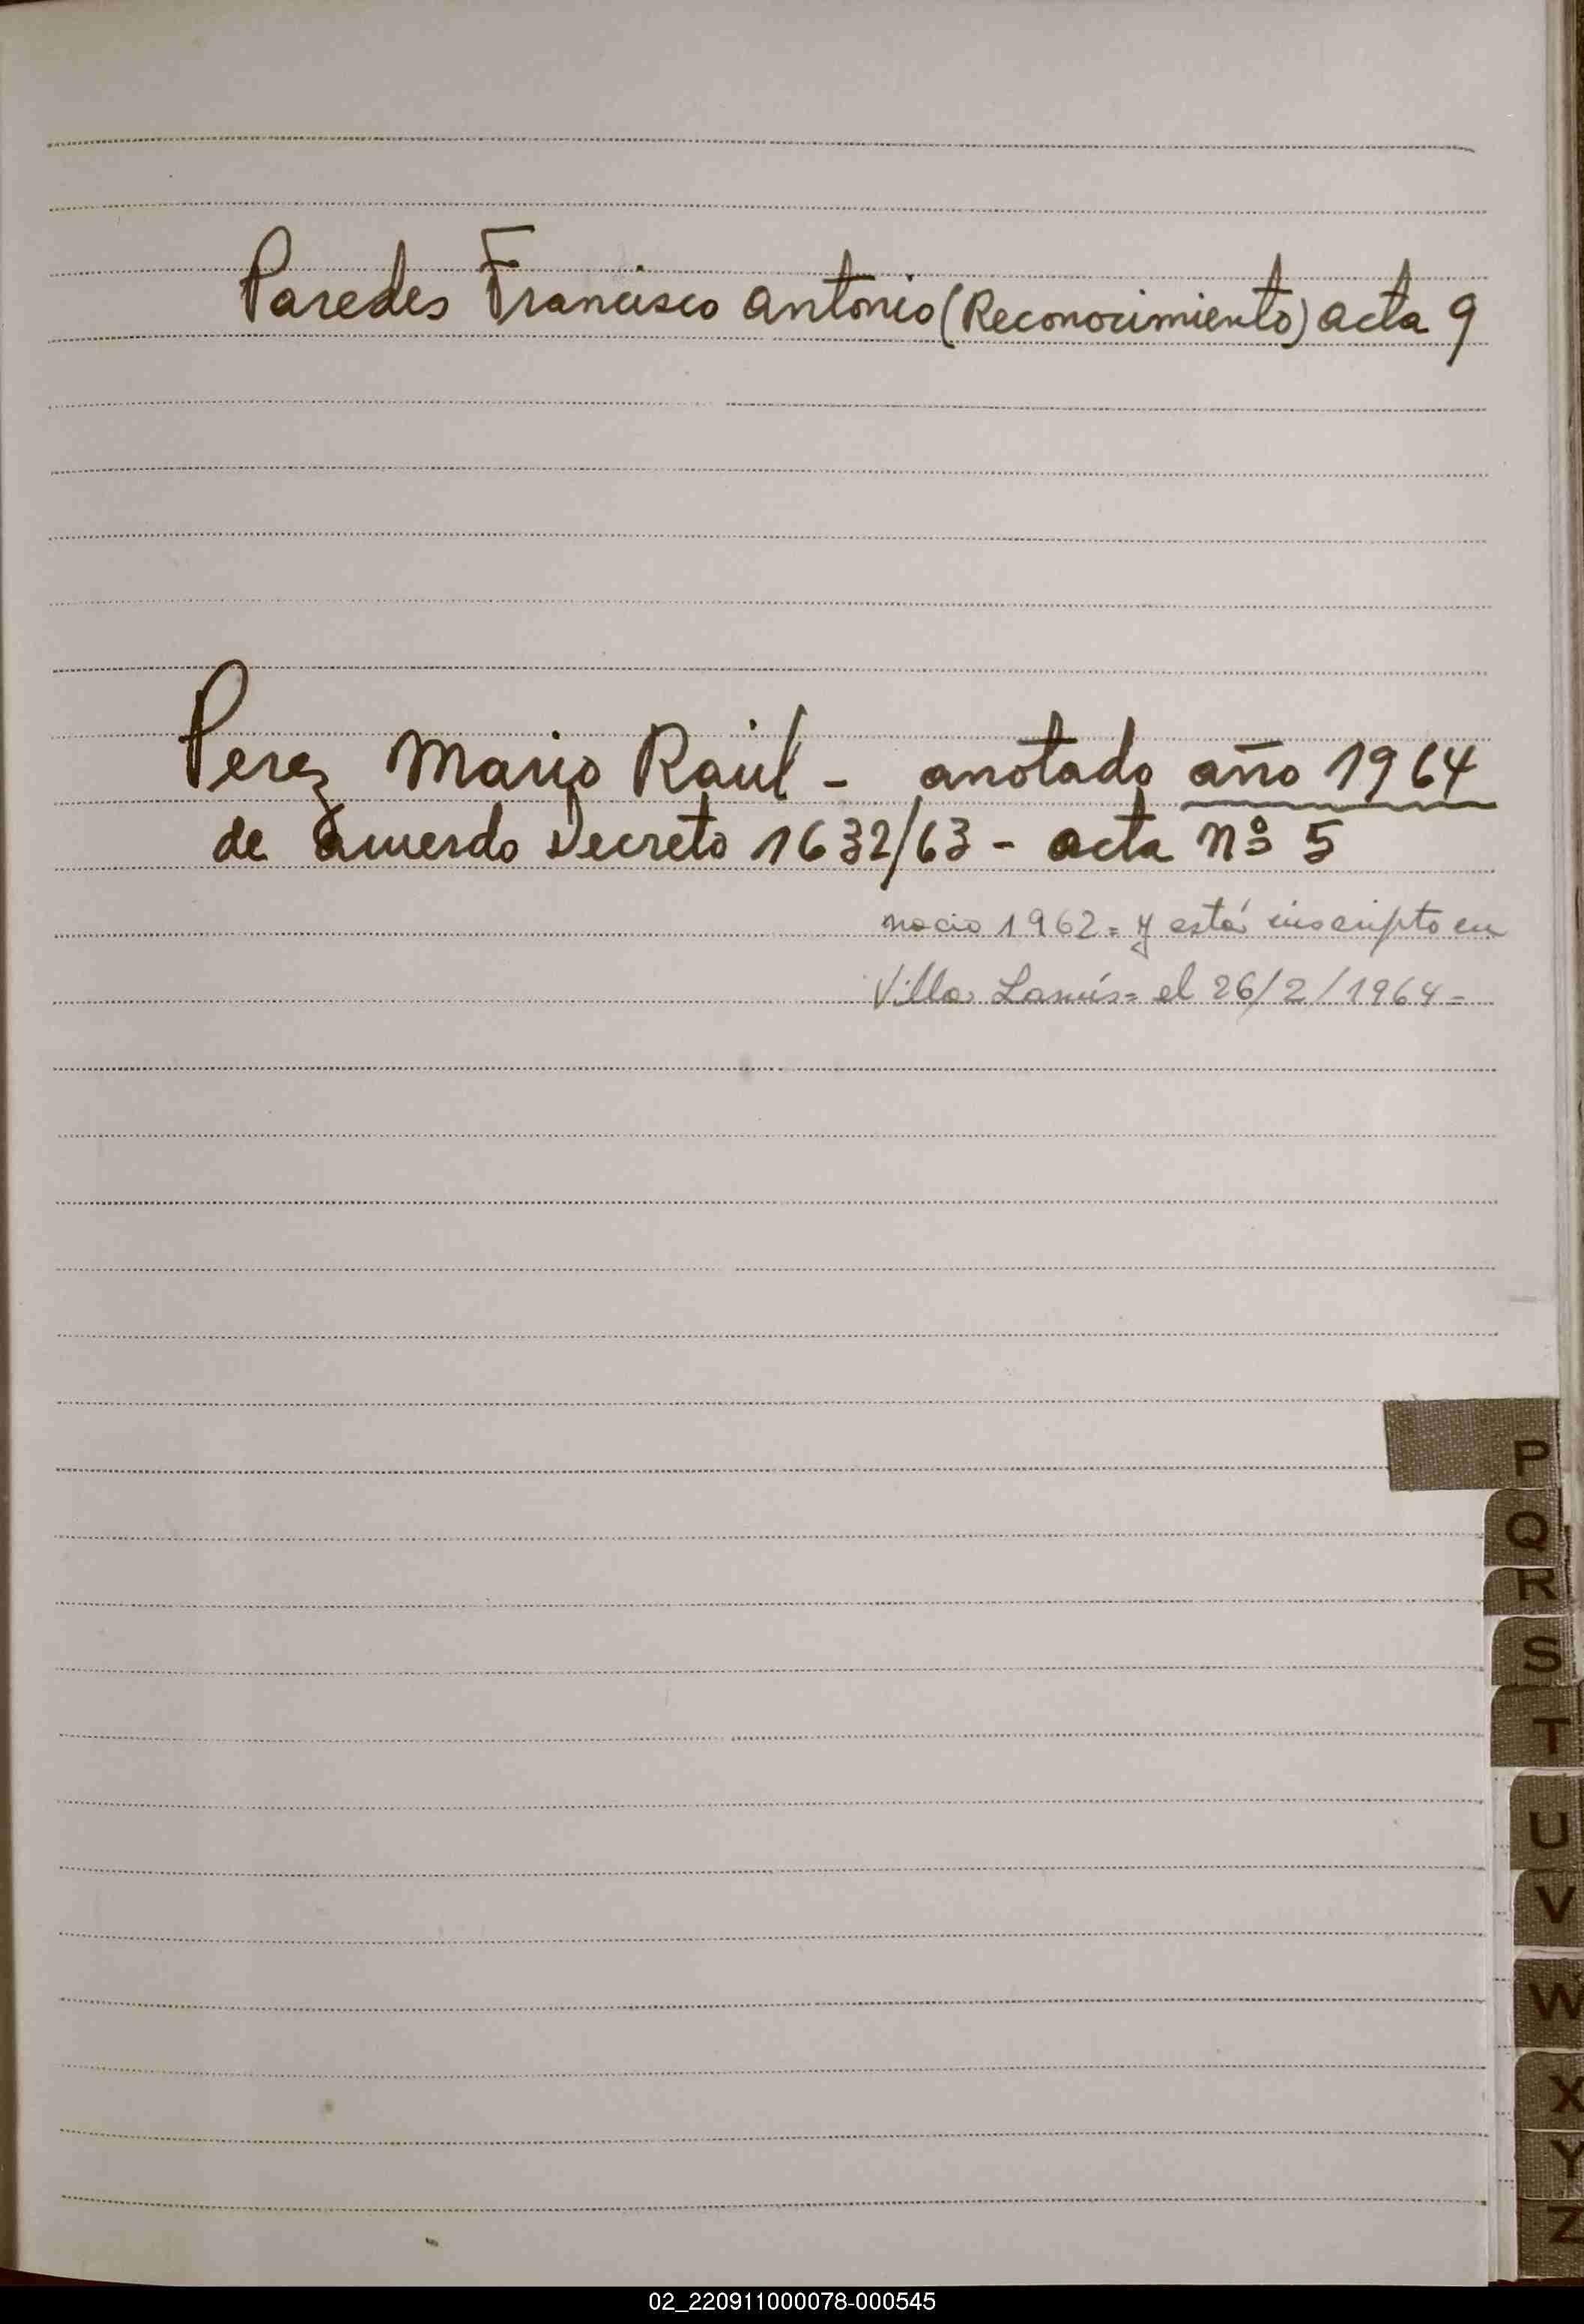 Paredes Francisco Antonio (Reconocimiento) acta 9
Perez Mario Raúl - anotado año 1964
de acuerdo Decreto 1632/63 - acta nº 5
nacio 1962 = y está inscripto en
Villa Lanús = el 26/2/1964 =
P
Q
R
S
T
U
V
W
X
Y
Z
02_220911000078-000545